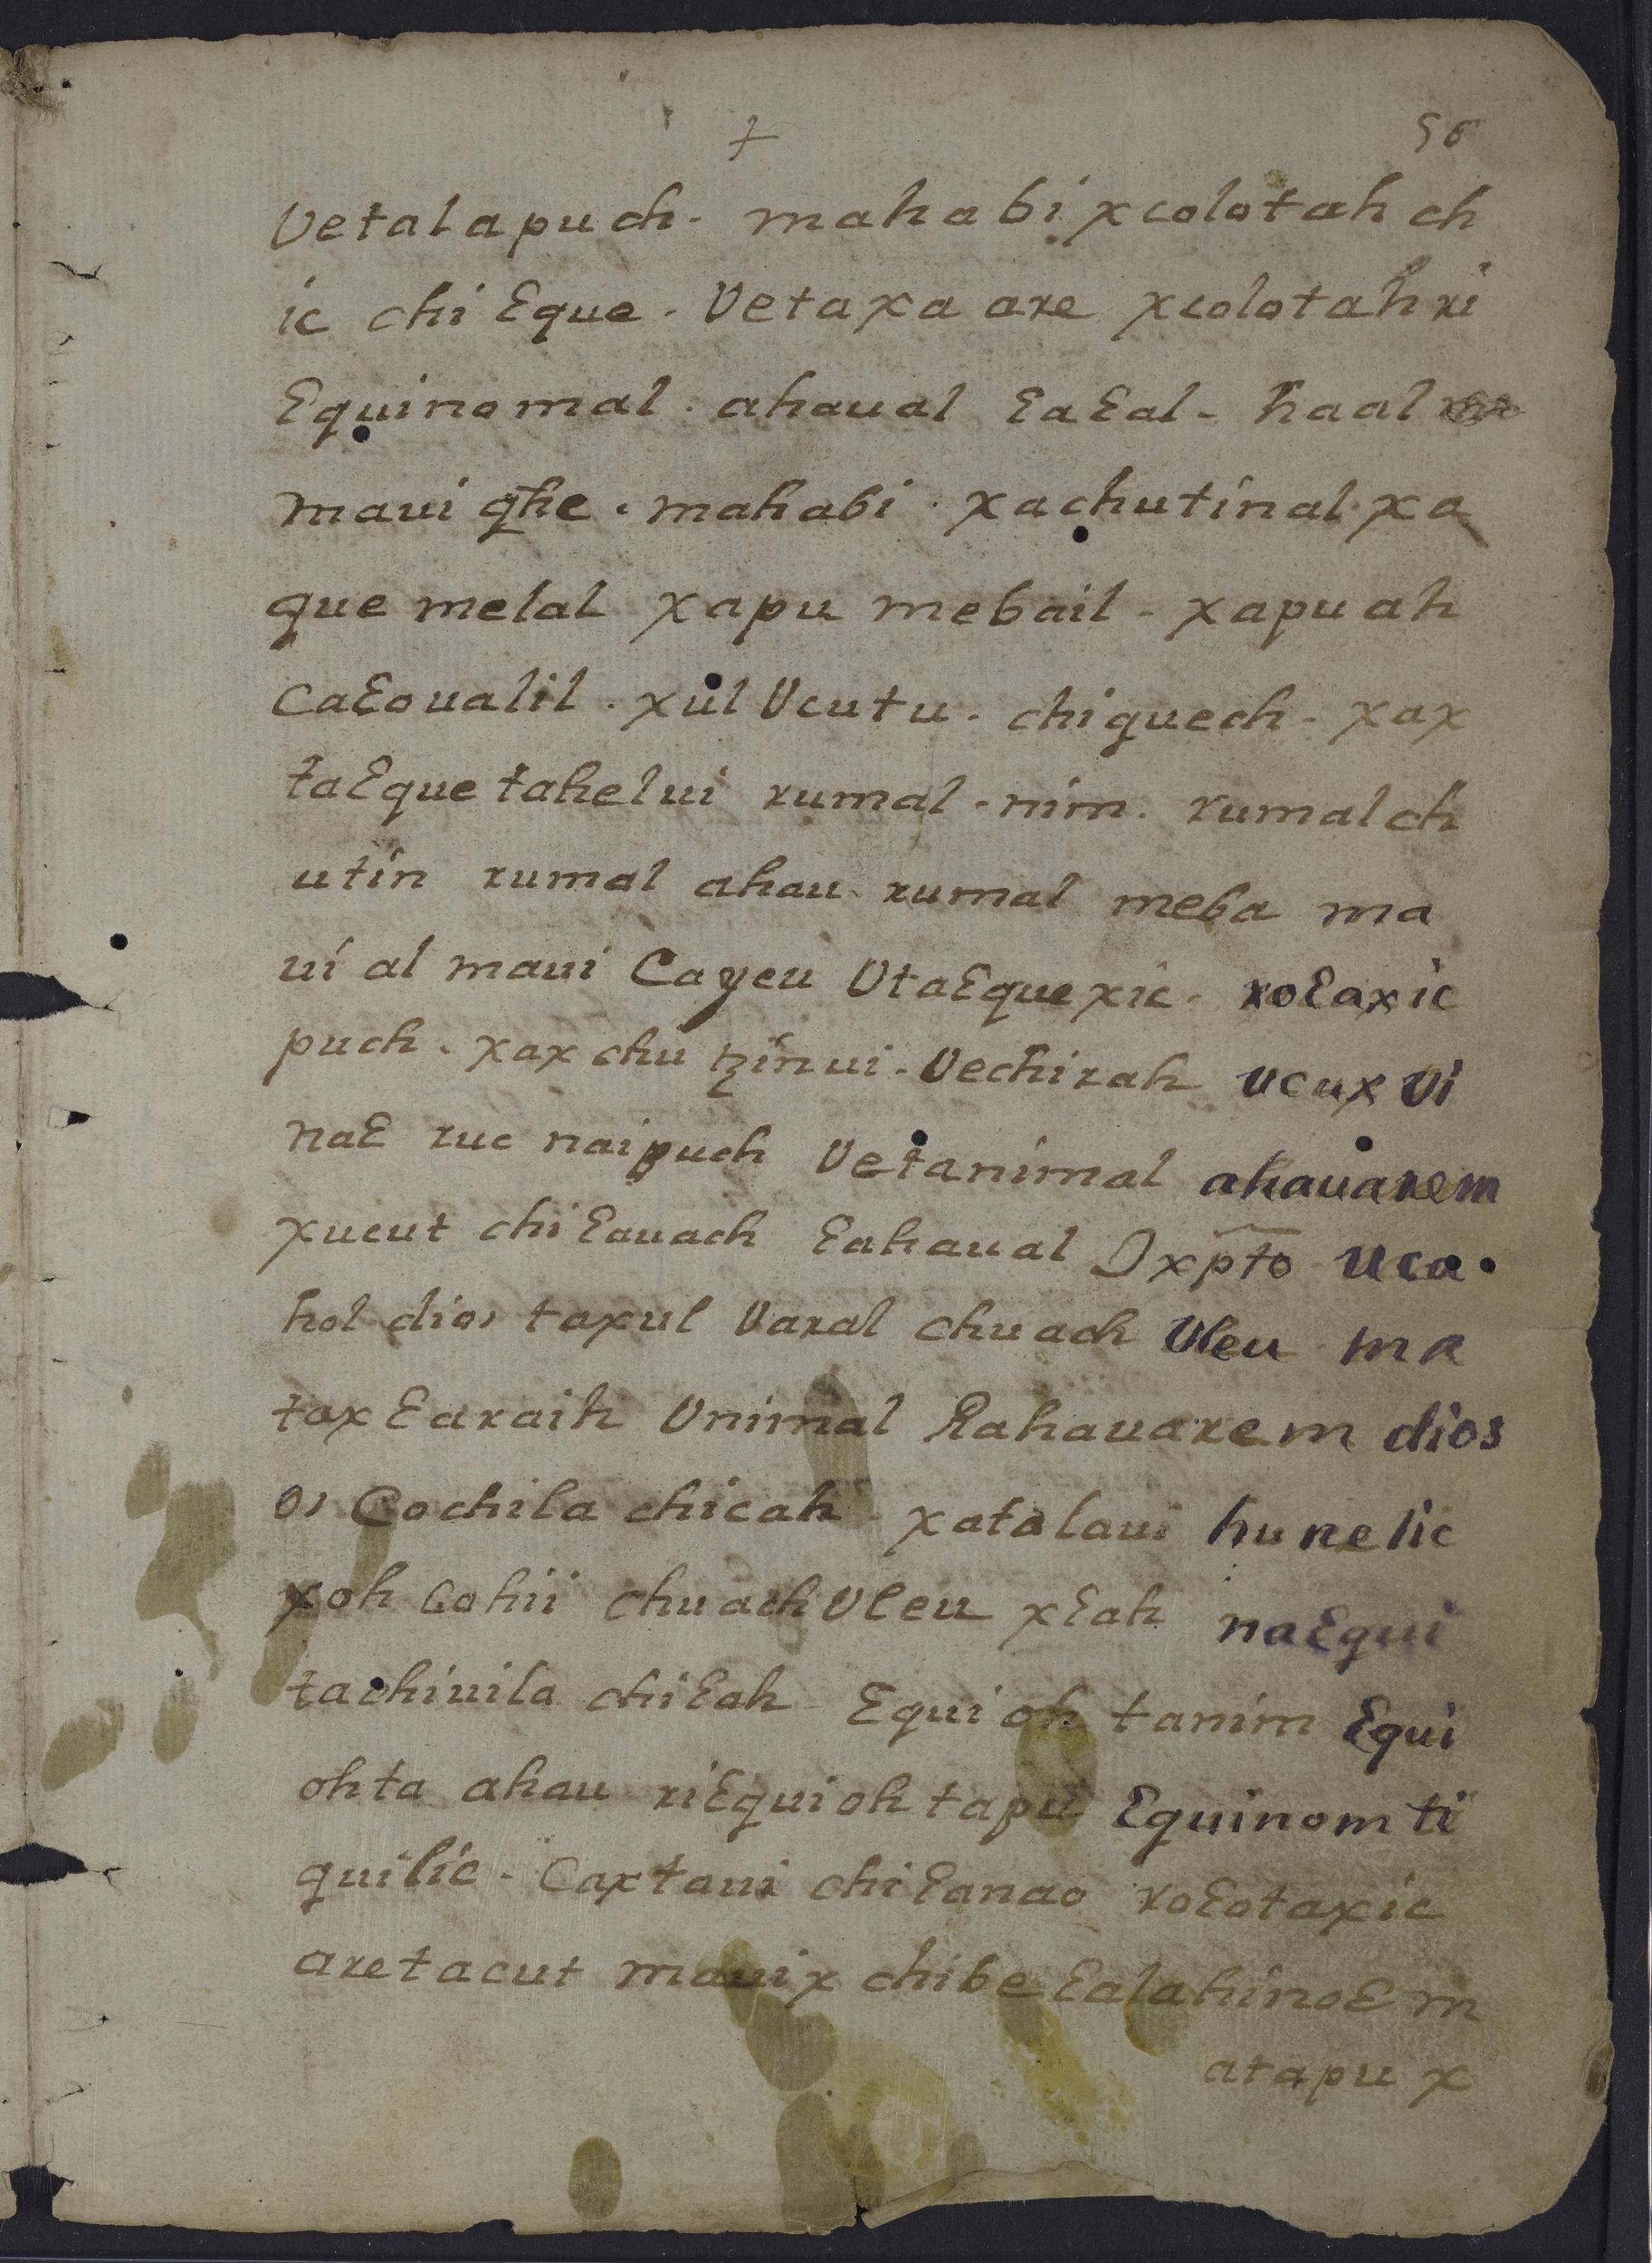 + 56
Vetalapuch. mahabi xcolotah ch
ic chi Ɛque. Vetaxa are xcolotah ri
Ɛquinomal. ahaual ƐaƐal - haal
maui qhe. mahabi. xachutinal xa
que melal xapu mebail - xapu ah
CaƐoualil. xul Ucutu. chiquech - xax
taƐque tahelui rumal - nim. rumal ch
utin rumal ahau rumal meba ma
ui al maui Cayeu UtaƐquexic. roƐaxic
puch. xax chu tzin ui. Vechirah ucux Vi
naƐ ruc naipuch Vetanimal ahauarem
xucut chi Ɛauach Ɛahaual Jxp̃to uca
hol dios taxul Varal chuach Uleu ma
tax Ɛaraih Unimal Rahauarem dios
os Cochila chicah xatalaui hunelic
xoh cohii chuach Uleu xƐah naƐqui
tachiuila chiƐah Ɛqui oh tanim Ɛqui
ohta ahau riƐqui oh tapu Ɛquinom ti
quilic. Caxtaui chiƐanao roƐotaxic
aretacut mauix chibe Ɛalahinoɛ m
atapu x